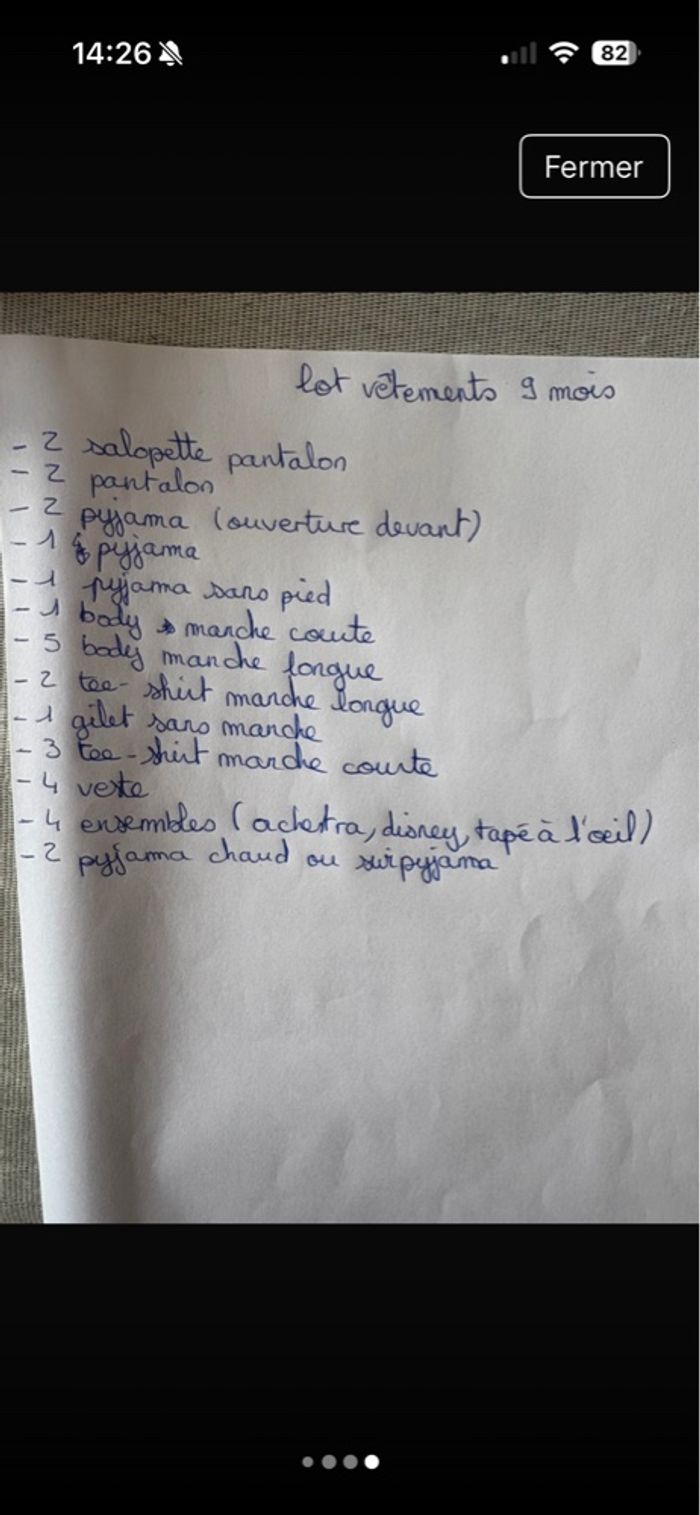 14:26
82
Fermer
lot vêtements 9 mois
- 2 salopette pantalon
- 2 pantalon
- 2 pyjama (ouverture devant)
- 1 pyjama
- 1 pyjama sans pied
- 1 body manche courte
- 5 body manche longue
- 2 tee-shirt manche longue
- 1 gilet sans manche
- 3 tee-shirt manche courte
- 4 veste
- 4 ensembles (achetra, disney, tapé à l'œil)
- 2 pyjama chaud ou surpyjama